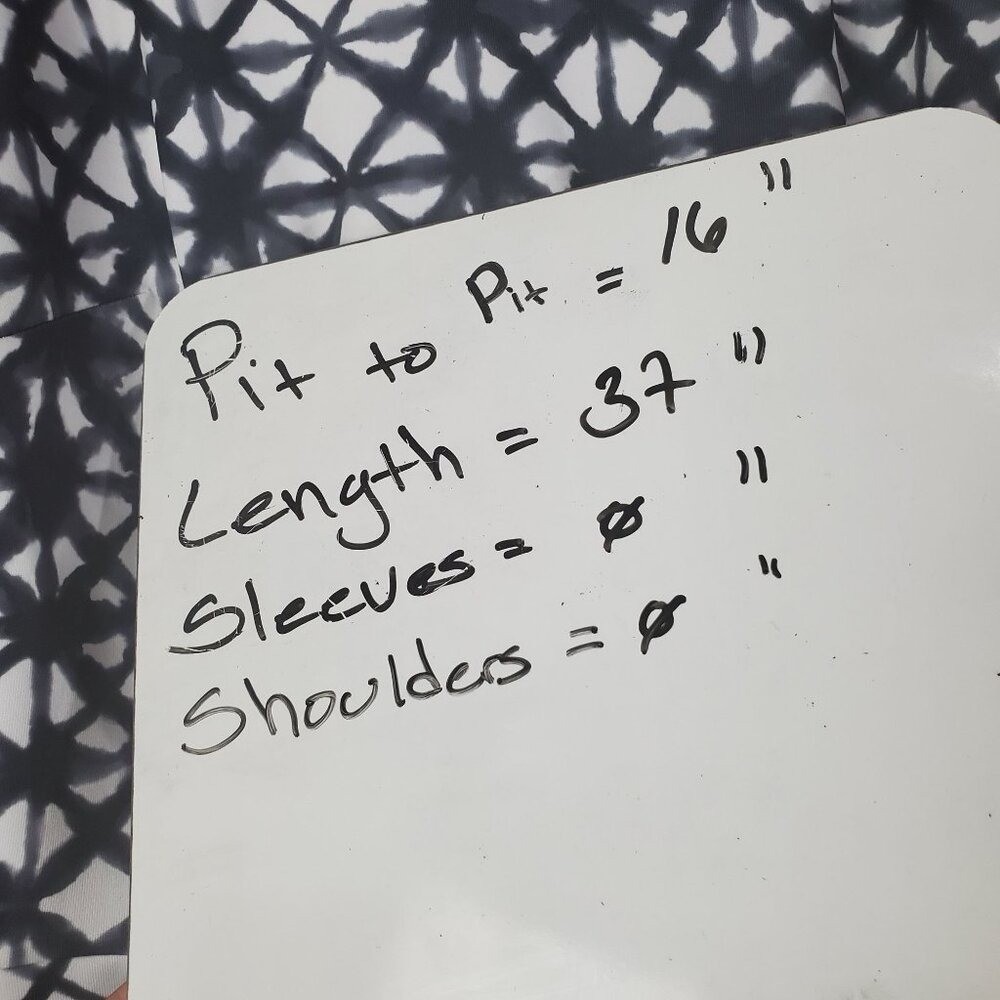 Pit to Pit = 16 "
Length = 37 "
Sleeves = Ø "
Shoulders = Ø "